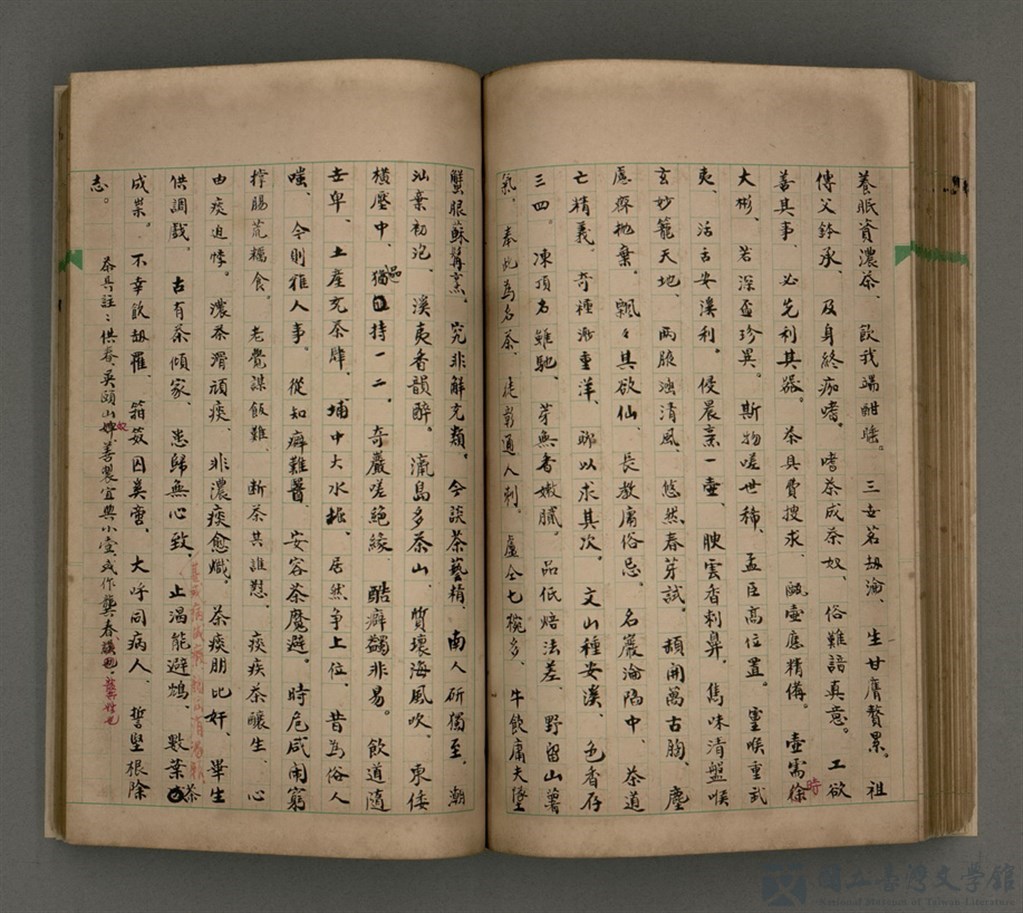 養眠資濃茶、飲我端酣睡。三女茗劫淪、生甘膺贅累。祖
傳父鈴承、及身終痂嗜。嗜茶成茶奴、俗難諳真意。工欲
善其事、必先利其器。茶具費搜求、甌壺應精備。壺需徐
時
大彬、若深盃珍異。斯物嗟世稀、孟臣高位置。重喉重武
夷、沽古安溪利。侵晨烹一壷、腴雲香刺鼻。雋味清盤喉
玄妙籠天地、兩腋湧清風、悠然春芽試。頓開萬古胸、塵
慮齊抛棄。飄々其欲仙、長教庸俗忌。名巖淪陷中、茶道
亡精義。奇種漸重洋、聊以求其次。文山種安溪、色香存
三四。凍頂名雖馳、芽無香嫩膩。品低焙法差、野留山薯
氣、奉此為名茶、徒嶄通人刺。盧仝七椀多、牛飲庸夫墜
蟹眼蘇髯烹、究非解充類。今談茶藝精、南人斫獨至、潮
汕棄初泡、溪夷香韻醉。瀛島多茶山、質壞海風吹、東倭
橫壓中、猶品持一二。奇嚴嗟絕緣、酷癖蠲非易。飲道隨
世卑、土產充茶肆、埔中大水柢、居然爭上位、昔為俗人
嗤、今則雅人事。從知癖難醫、安容茶魔避。時危咸鬧窮
撑腸荒糲食。老覺謀飯難、斷茶其誰懟。痰疾茶釀生、心
由痰迫悸。濃茶滑頑痰、非濃痰愈熾。茶痰朋比奸、畢生
供調戲。古有茶傾家、患歸無心致。止渴能避鴆、數葉茶
成祟。不幸飲劫羅、箱笈因美啻。大呼同病人、誓堅根除
志。
茶具註：供春、吳頤山婢、善製宜興小壺、或作龔春
奴